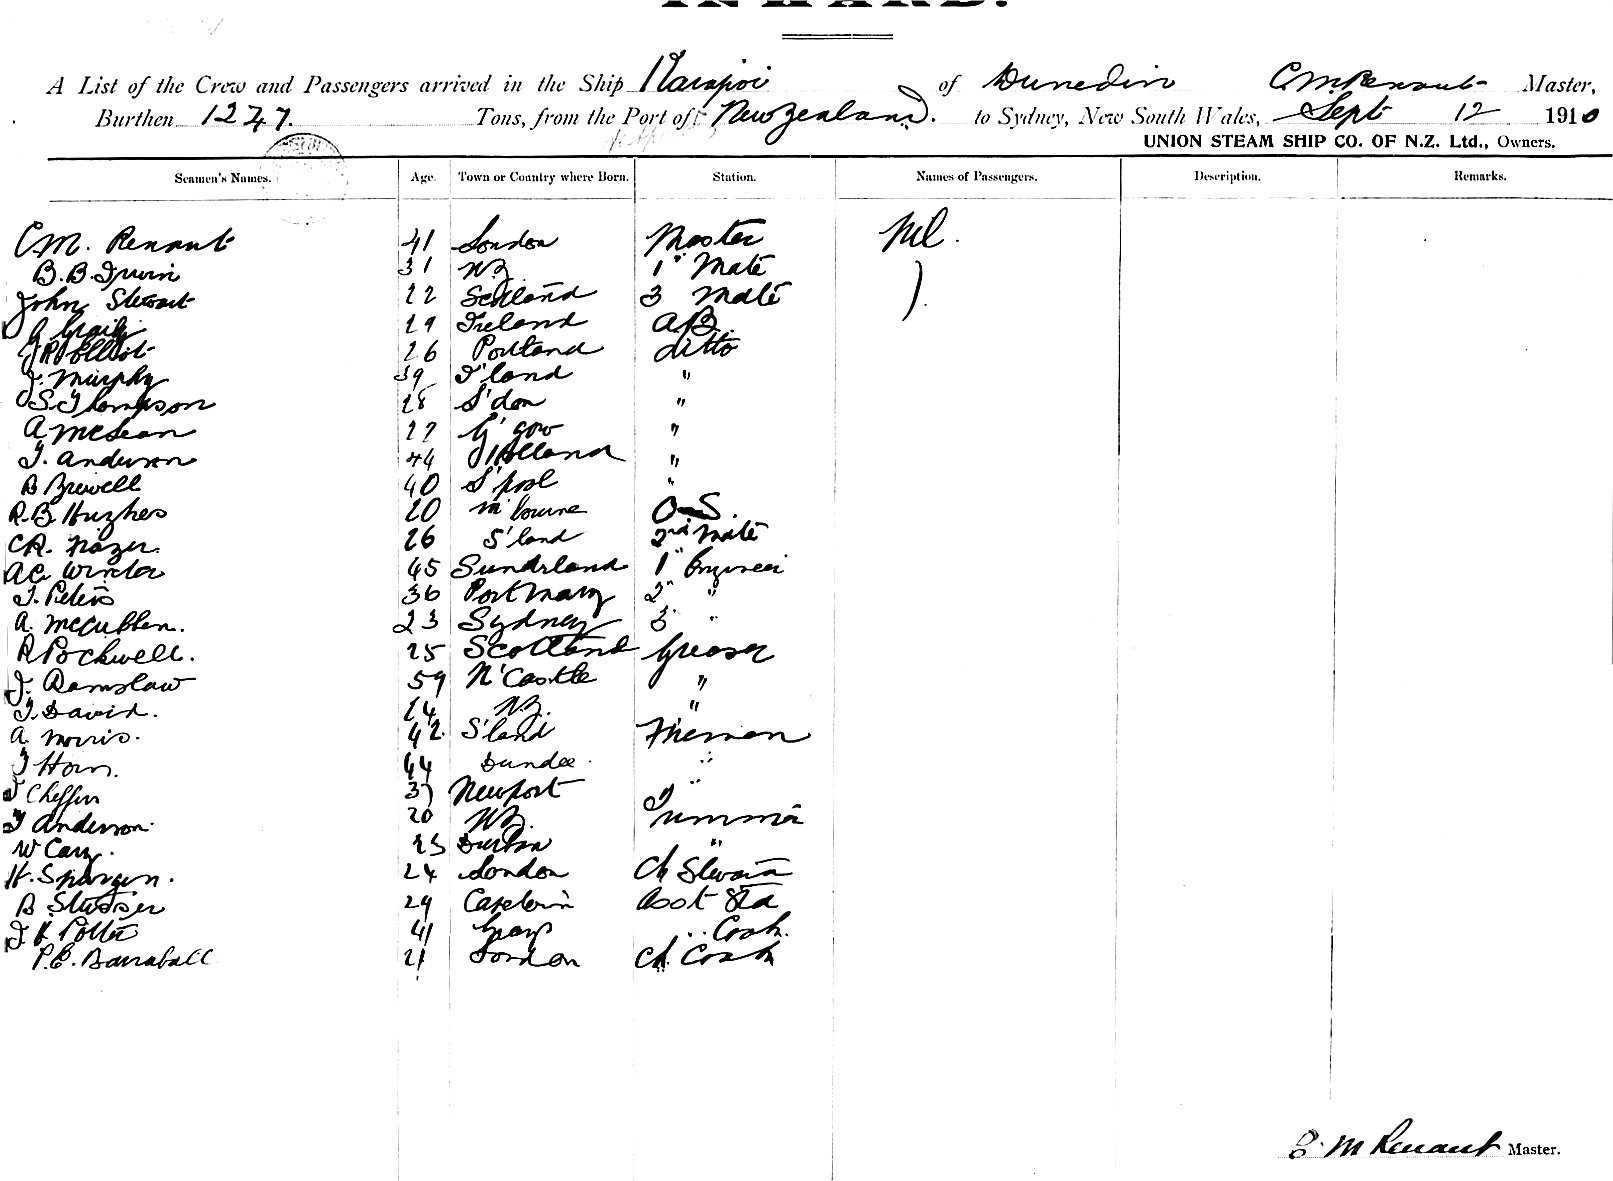 INWARD.
A List of the Crew and Passengers arrived in the Ship Karapoi of Dunedin C M Renaut Master,
Burthen 1247. Tons, from the Port of New Zealand. to Sydney, New South Wales, Sept 12 1910
UNION STEAM SHIP CO. OF N.Z. Ltd., Owners.
Seamen's Names. Age. Town or Country where Born. Station. Names of Passengers. Description. Remarks.
C M. Renaut 41 London Master Nil.
B. B. Irwin 31 NZ 1" Mate
John Stewart 22 Scotland 3 Mate
29 Ireland AB.
26 Portland ditto
J. Murphy 39 I'land "
S. Thompson 28 L'don "
A McLean 27 G'gow "
J. Anderson 44 Holland "
B Brewell 40 L'pool "
R. B Hughes 20 M'bourne O S.
CR. Frazer 26 S'land 2nd Mate
AC Winter 45 Sundrland 1" Engineer
J. Peters 36 Port Mary 2" "
A. McCubben. 23 Sydney 3 "
R Rockwell. 25 Scotland Greaser
J. Ramslaw 59 N'Castle "
J. David. 24 NZ. "
A Morris. 42 S'land Fireman
J Horn. 44 Dundee "
J Cheffins 37 Newport "
J Anderson. 20 NZ. Trimmer
W Cary. 23 "
H. Spurgin. 24 London Ch Steward
B. 29 Asst Std
J K Potter 41 " Cook.
P. C. Barraball 21 London Ch Cook
C. M Renaut Master.